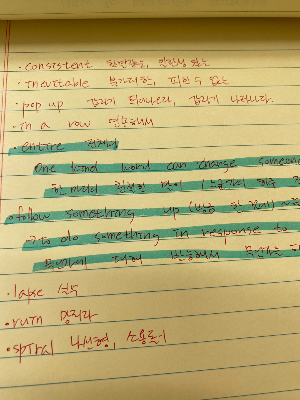 · consistent 한결같은, 일관성 있는
· inevitable 불가피한, 피할 수 없는
· pop up 갑자기 튀어나오다, 갑자기 나타나다.
· in a row 연속해서
· entire 전체의
One kind word can change someone
한 마디 친절한 말이
follow something up
to do something in response to
대해 반응해서
· lapse 실수
· ruin 망치다
· spiral 나선형, 소용돌이